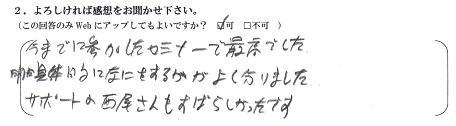 2．よろしければ感想をお聞かせ下さい。
（この回答のみWebにアップしてもよいですか？ ☑可 □不可 ）
今までに参加したセミナーで最高でした
具体的になにをするかがよく分りました
サポートの西尾さんもすばらしかったです